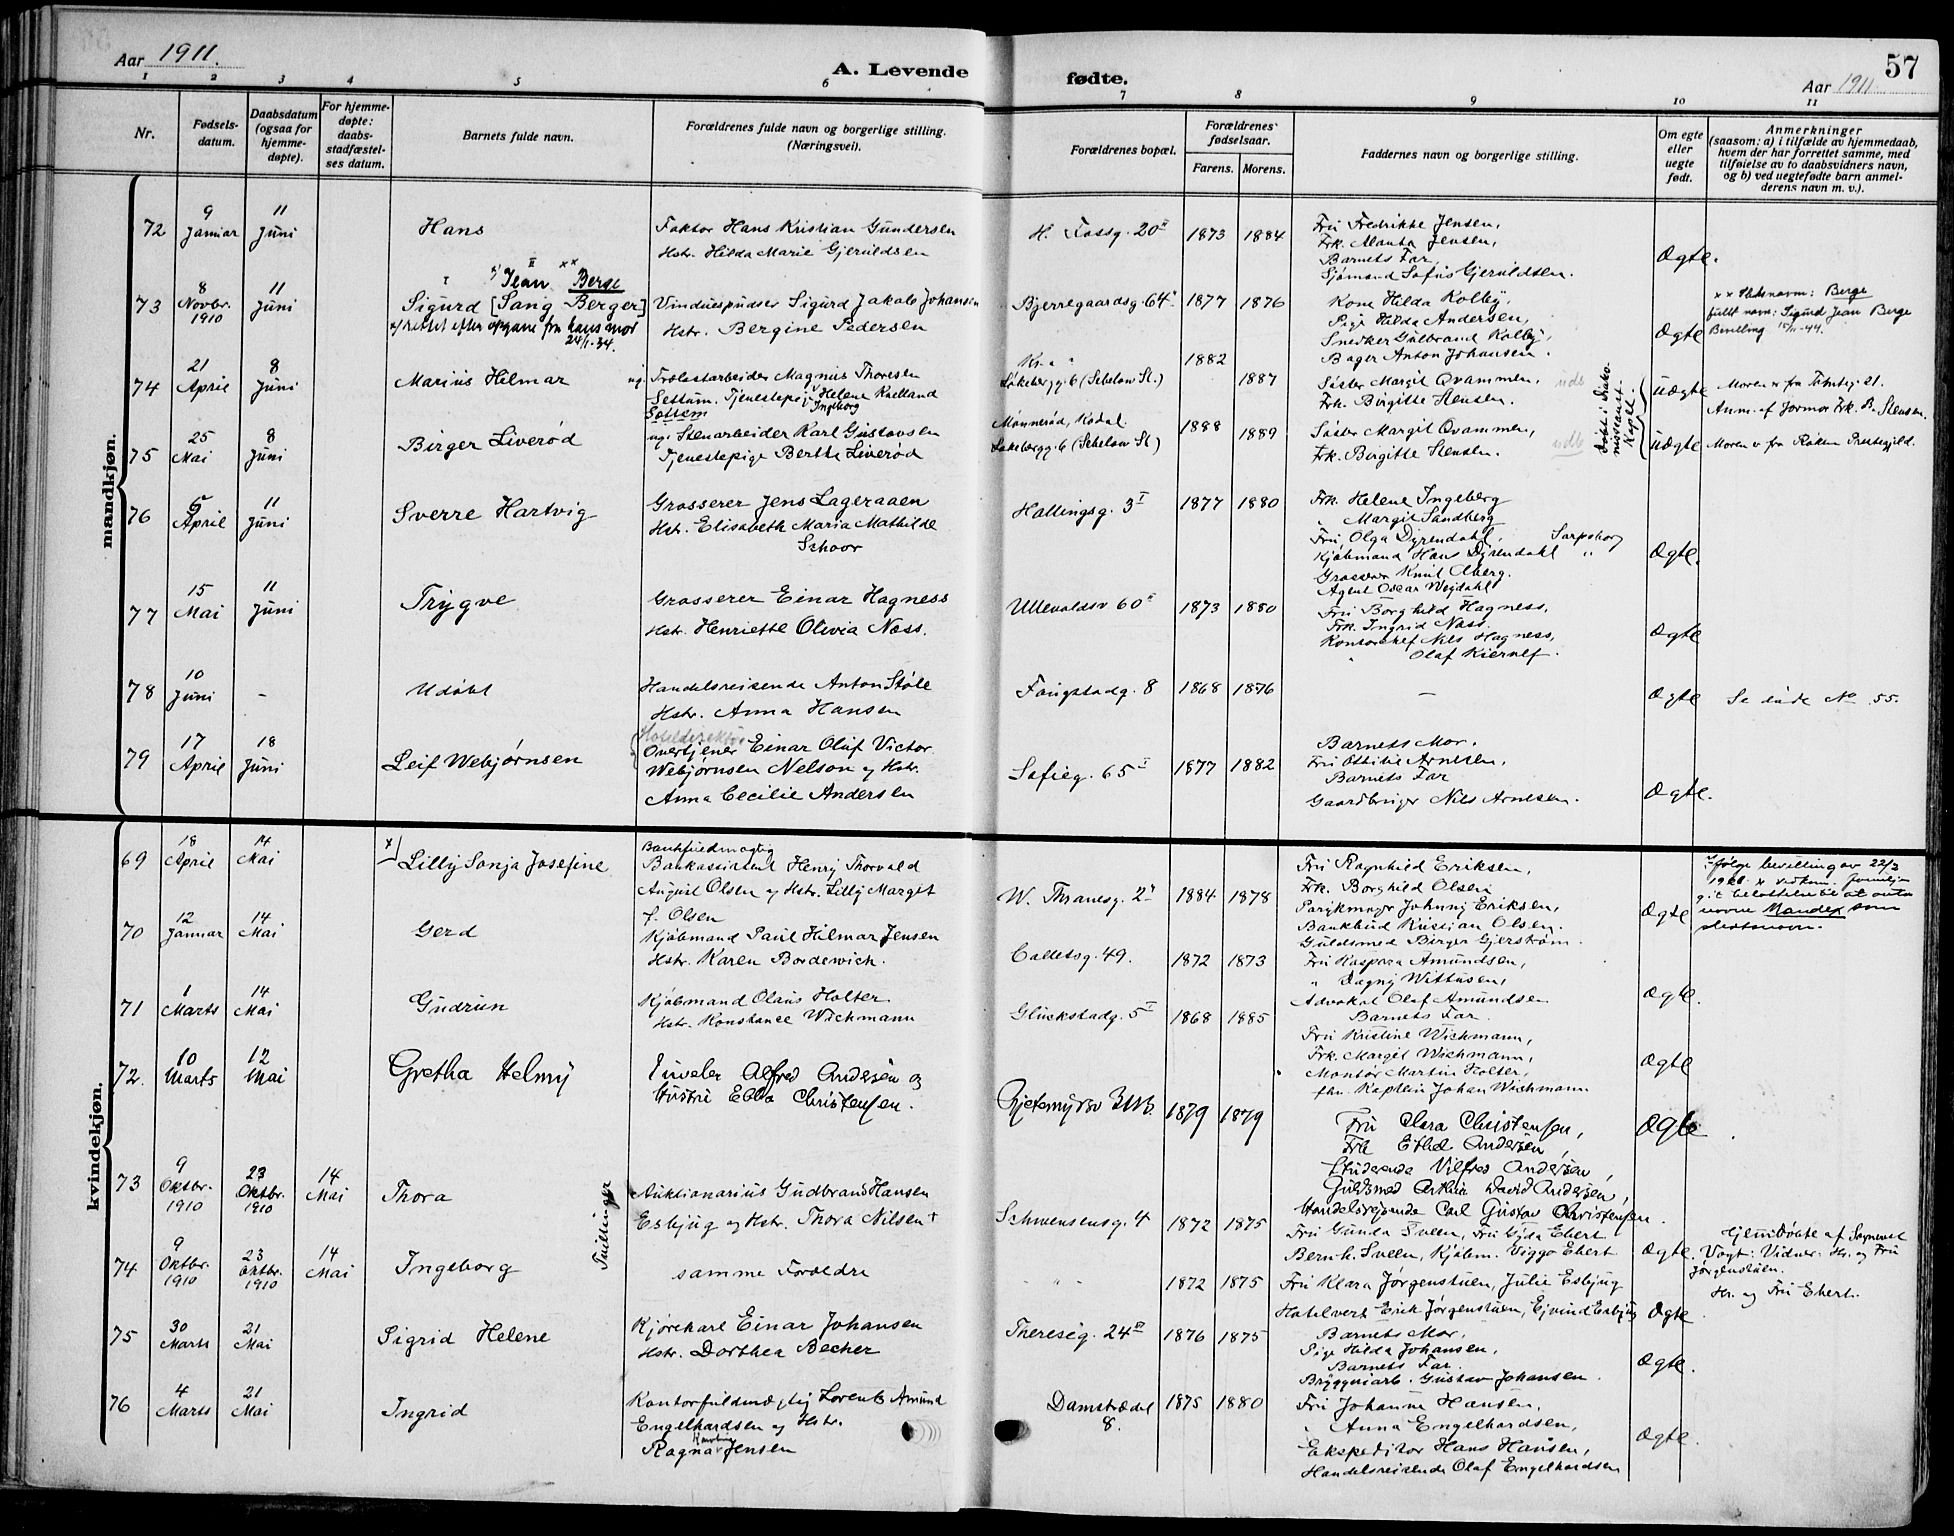 Aar 1911.
A. Levende
fødte.
Aar 1911
57
1 2 3 4 5 6 7 8 9 10 11
Nr.
Fødsels-
datum.
Daabsdatum
(ogsaa for
hjemme-
døpte).
For hjemme-
døpte:
daabs-
stadfæstel-
ses datum.
Barnets fulde navn.
Forældrenes fulde navn og borgerlige stilling.
(Næringsvei).
Forældrenes bopæl.
Forældrenes
fødselsaar.
Farens. Morens.
Faddernes navn og borgerlige stilling.
Om egte
eller
uegte
født.
Anmerkninger
(saasom: a) i tilfælde av hjemmedaab,
hvem der har forrettet samme, med
tilføielse av to daabsvidners navn,
og b) ved uegtefødte barn anmel-
derens navn m. v.).
mandkjøn.
72
9
Januar
11
Juni
Hans
Faktor Hans Kristian Gundersen
Hstr. Hilda Marie Gjeruldsen
H. Fossg. 20 II
1873 1884
Fru Fredrikke Jensen,
Frk. Manta Jensen,
Barnets Far,
Sjømand Sofus Gjeruldsen.
Ægte.
73
8
Novbr.
1910
11
Juni
x) Jean xx Berge
Sigurd [Sang Berger]
x) rettet efter opgave fra hans mor
24/1-34.
Vinduespudser Sigurd Jakob Johansen
Hstr. Bergine Pedersen
Bjerregaardsg. 64
1877 1876
Kone Hilda Kolby,
Pige Hilda Andersen,
Snedker Gulbrand Kolby,
Bager Anton Johansen.
Ægte
xx Slektsnavn: Berge
fullt navn: Sigurd Jean Berge
Bevilling 15/11-44.
74
21
April
8
Juni
Marius Hilmar
ug. Trælastarbeider Magnus Thoresen
Settum. Tjenestepige Helene Knelland
Settem Ingeborg
Kr.a "
Løkebergg. 6 (Schelow St.)
1882
1887
Søster Margit Qvammen,
Frk. Birgitte Stensen.
udb
Døbt i Diako-
nisseanst.
Kapel.
Uægte
Anm. af Jormor Frk. B. Stensen.
75
25
Mai
8
Juni
Birger Liverød
ug. Stenarbeider Karl Gustavsen
Tjenestepige Berthe Liverød
Mønnerød, Kodal
Løkebergg. 6 (Schelow St.)
1888
1889
Søster Margit Qvammen,
Frk. Birgitte Stensen.
udb
Uægte
Moren v. fra Råken Prestegjeld.
76
5
April
11
Juni
Sverre Hartvig
Grosserer Jens Lageraaen
Hstr. Elisabeth Maria Mathilde
Schoor
Hallingsg. 3 I
1877 1880
Frk. Helene Ingeberg
" Margit Sandberg
Fru Olga Dyrendahl, Sarpsborg
Kjøbmand Hans Dyrendahl "
Grosserer Knut Åberg.
Agent Oscar Wejdahl
Ægte.
77
15
Mai
11
Juni
Trygve
Grosserer Einar Hagness
Hstr. Henriette Olivia Næss.
Ullevoldsv 60 II
1873 1880
Fru Borghild Hagness,
Frk. Ingrid Næss.
Kontorchef Nils Hagness,
" Olaf Kiernef.
Ægte
78
10
Juni
-
Udøbt
Handelsreisende Anton Støle
Hstr. Anna Hansen
Fougstadg. 8
1868 1876
-
Ægte
Se døde No 55.
79
17
April
18
Juni
Leif Webjørnsen
Hoteldirektør
Overtjener Einar Oluf Victor
Webjørnsen Nelson og Hstr.
Anna Cecilie Andersen
Sofieg. 65 I
1877 1882
Barnets Mor.
Fru Ottilie Arnesen,
Barnets Far
Gaardbruger Nils Arnesen.
Ægte.
kvindekjøn.
69
18
April
14
Mai
x) Lilly Sonja Josefine
Bankfuldmægtig
Bankassistent Henry Thorvald
August Olsen og Hstr. Lilly Margit
f. Olsen
W. Thranesg. 2
1884 1878
Fru Ragnhild Eriksen,
Frk. Borghild Olsen
Parykmager Johnny Eriksen,
Bankbud Kristian Olsen.
Guldsmed Birger Gjerstrøm.
Ægte
ifølge bevilling av 22/3
navne Mandex som
slektsnavn.
70
12
Januar
14
Mai
Gerd
Kjøbmand Paul Hilmar Jensen
Hstr. Karen Bordewich.
Colletsg. 49.
1872 1873
Fru Kaspara Amundsen,
" Dagny Wittusen,
Advokat Olaf Amundsen
Barnets Far.
Ægte.
71
1
Marts
14
Mai
Gudrun
Kjøbmand Olaus Holter
Hstr. Konstance Wichmann
Glückstadg. 5 I
1868 1885
Fru Kristine Wichmann,
Frk. Margit Wichmann,
Montør Martin Holter,
fhv. Kaptein Johan Wichmann
Ægte
72.
10
Marts
12
Mai
Gretha Helmy
Juveler Alfred Andersen og
Hustru Ebba Christensen.
Gjetemyrsv 3
1879 1879
Fru Clara Christensen,
Frk Ethel Andersen,
Studerende Vilfred Andersen,
Guldsmed Arthur David Andersen,
Handelsrejsende Carl Gustav Christensen.
Ægte
73
9
Oktbr.
1910
23
Oktbr.
1910
14
Mai
Thora
Tvillinger
Auktionarius Gudbrand Hansen
Esbjug og Hstr. Thora Nilsen +
Schwensensg. 4
1872 1875
Fru Gunda Sveen, Fru Gyda Ebert
Bernh. Sveen, Kjøbm. Viggo Ebert
Ægte.
Hjemdøbte af Sogneprest
Vogt: Vidner: Hr. og Fru
Jørgenstuen.
74
9
Oktbr.
1910
23
Oktbr.
1910
14
Mai
Ingeborg
samme Foreldre
" "
1872 1875
Fru Klara Jørgenstuen, Julie Esbjug
Hotelvert Erik Jørgenstuen, Ejvind Esbjug
Ægte
Hr. og Fru Ebert.
75
30
Marts
21
Mai
Sigrid Helene
Kjørekarl Einar Johansen
Hstr. Dorthea Becher
Theresig. 24 III
1876 1875
Barnets Mor,
Pige Hilda Johansen,
Barnets Far.
Bryggeriarb. Gustav Johansen.
Ægte.
76
4
Marts
21
Mai
Ingrid
Kontorfuldmægtig Lorentz Amund
Engelhardsen og Hstr.
Ragna Jensen
Damstrædet
8.
1875 1880
Fru Johanne Hansen,
" Anna Engelhardsen,
Ekspeditør Hans Hansen,
Handelsreisende Olaf Engelhardsen
Ægte.